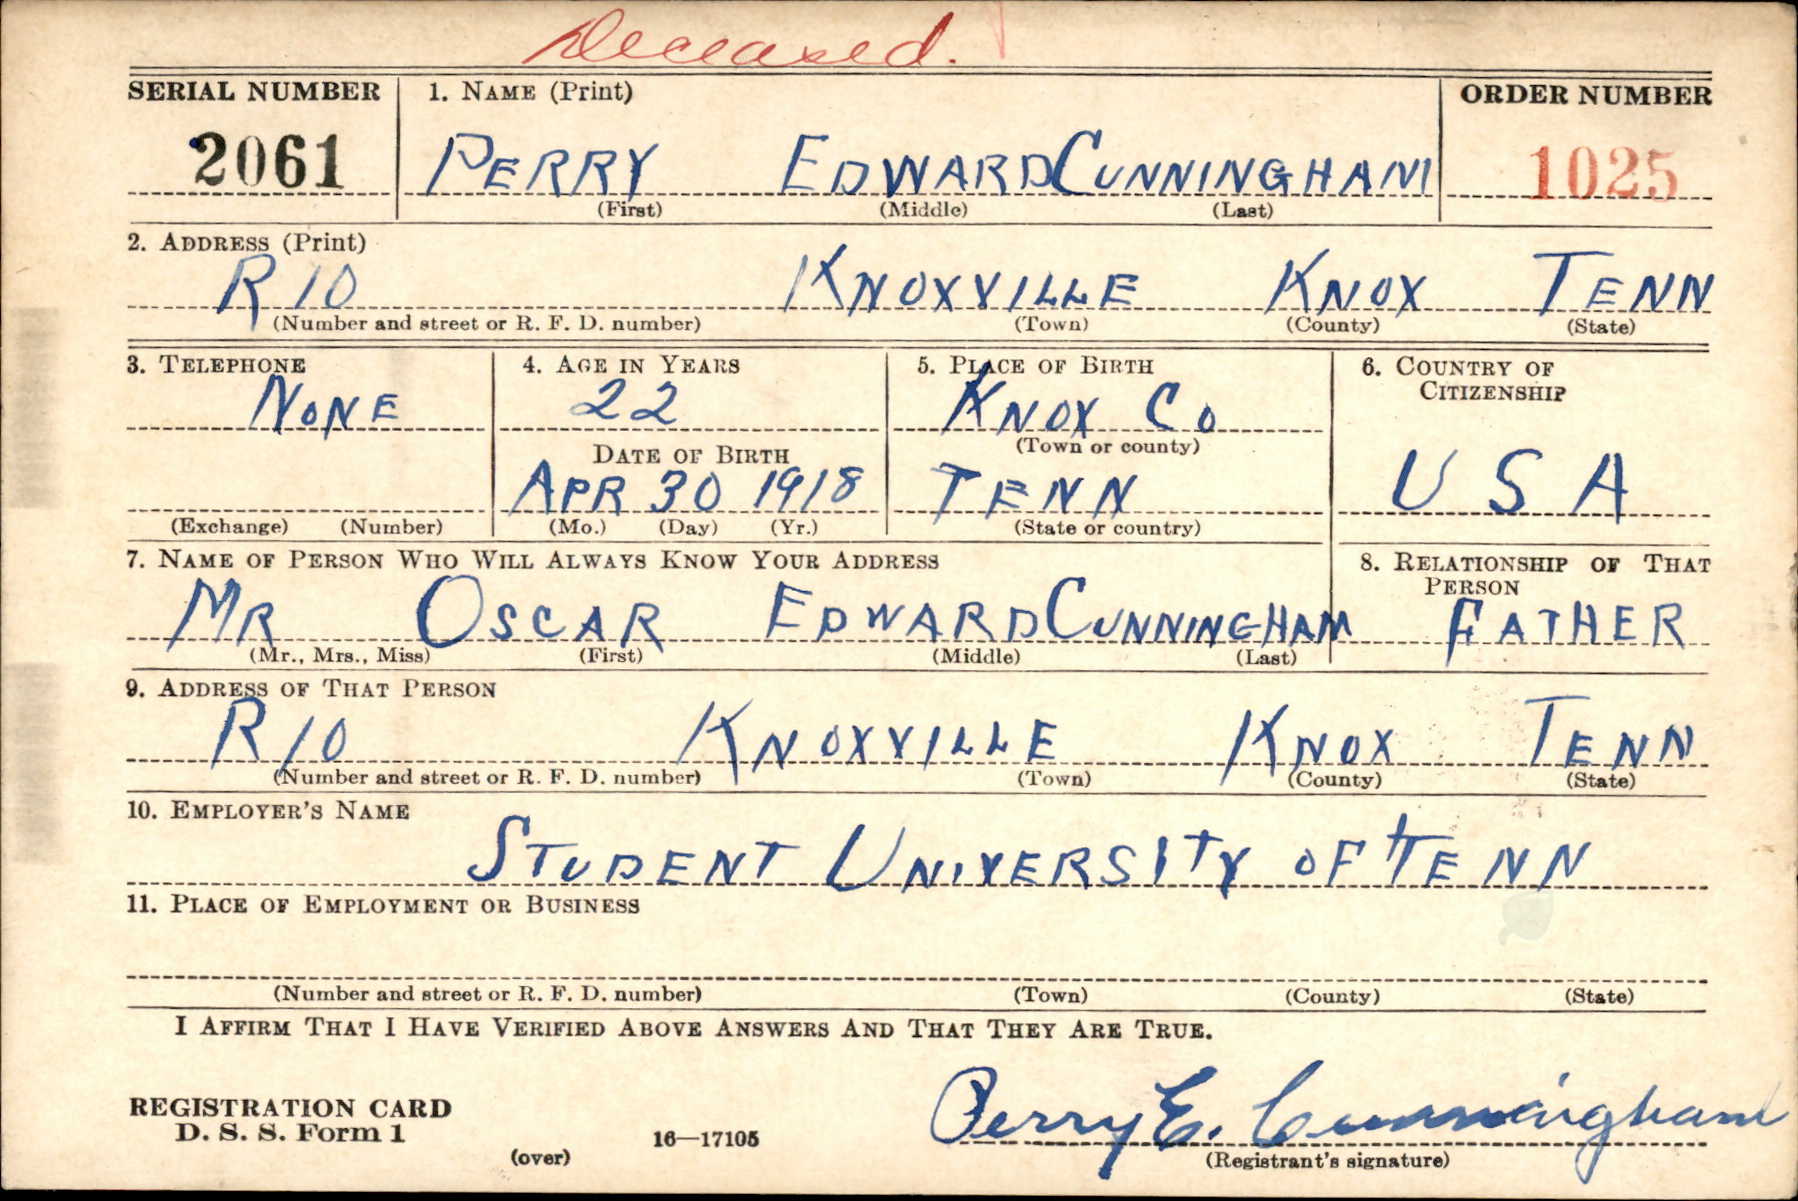 Deceased.
SERIAL NUMBER 1. NAME (Print) ORDER NUMBER
2061 PERRY EDWARD CUNNINGHAM 1025
(First) (Middle) (Last)
2. ADDRESS (Print)
R 10 KNOXVILLE KNOX TENN
(Number and street or R. F. D. number) (Town) (County) (State)
3. TELEPHONE 4. AGE IN YEARS 5. PLACE OF BIRTH 6. COUNTRY OF CITIZENSHIP
NONE 22 KNOX CO
(Town or county)
DATE OF BIRTH
APR 30 1918 TENN U S A
(Exchange) (Number) (Mo.) (Day) (Yr.) (State or country)
7. NAME OF PERSON WHO WILL ALWAYS KNOW YOUR ADDRESS 8. RELATIONSHIP OF THAT PERSON
MR OSCAR EDWARD CUNNINGHAM FATHER
(Mr., Mrs., Miss) (First) (Middle) (Last)
9. ADDRESS OF THAT PERSON
R 10 KNOXVILLE KNOX TENN
(Number and street or R. F. D. number) (Town) (County) (State)
10. EMPLOYER'S NAME
STUDENT UNIVERSITY OF TENN
11. PLACE OF EMPLOYMENT OR BUSINESS
(Number and street or R. F. D. number) (Town) (County) (State)
I AFFIRM THAT I HAVE VERIFIED ABOVE ANSWERS AND THAT THEY ARE TRUE.
REGISTRATION CARD
D. S. S. Form 1 16—17105 Perry E. Cunningham
(over) (Registrant's signature)